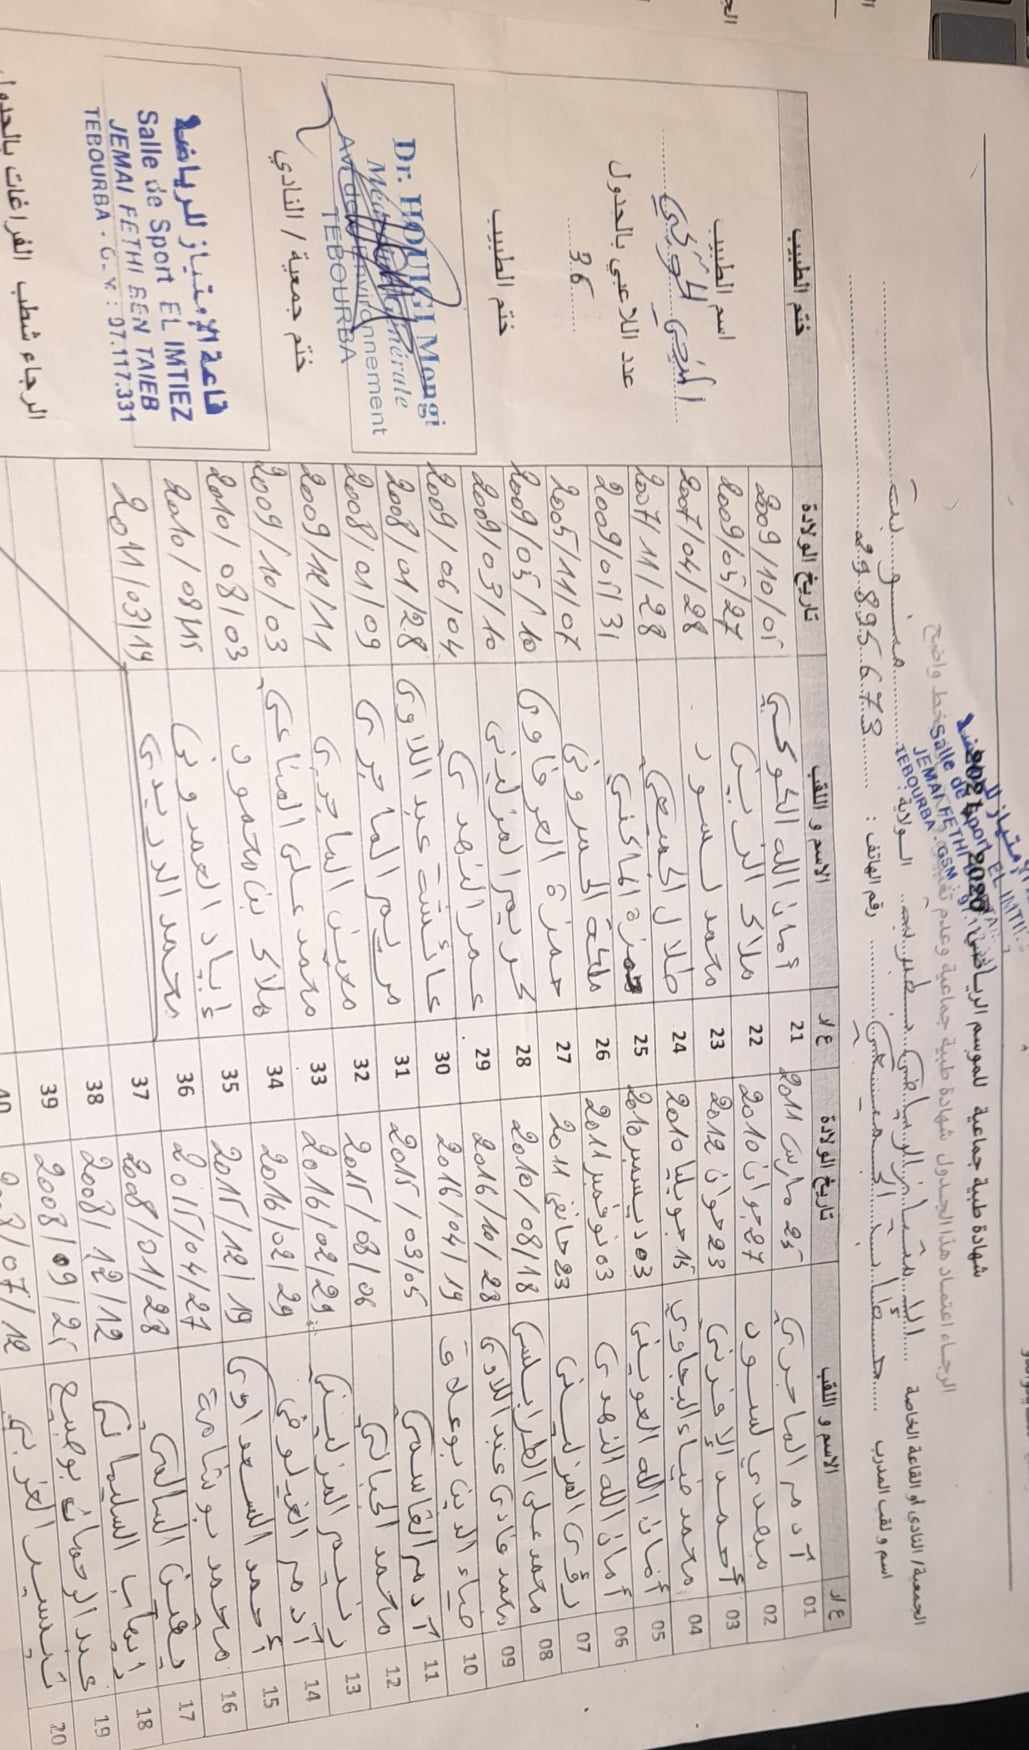 شهادة طبية جماعية للموسم الرياضي 2020 2021
الرجاء اعتماد هذا الجدول شهادة طبية جماعية وعدم خط واضح
الجمعية/ النادي أو القاعة الخاصة الولاية: منوبة
اسم و لقب المدرب رقم الهاتف: 29895673
Salle de Sport EL IMTI
JEMAI FETHI
TEBOURBA . GSM
ع/د الاسم و اللقب تاريخ الولادة ع/د الاسم و اللقب تاريخ الولادة ختم الطبيب
01 آدم الماجري 25 مارس 2011
02 مهدي لسود 27 جوان 2010
03 أحمد 23 جوان 2012
04 محمد ضياء البجاوي 15 جويلية 2010
05 أمان الله العويني 03 ديسمبر 2010
06 أمان الله النهدي 03 نوفمبر 2011
07 رؤى المزليني 23 جانفي 2011
08 محمد علي الطرابلسي 2010/08/18
09 محمد عبد اللاوي 2016/10/23
10 ضياء الدين بوعلاق 2016/04/19
11 آدم القاسمي 2015/03/05
12 محمد الجبالي 2015/08/06
13 المزليني 2016/02/29
14 آدم الغيلوفي 2016/02/29
15 أحمد السعداوي 2015/12/19
16 محمد بوشامة 2015/04/27
17 يقين السالمي 2008/01/28
18 إيهاب السليماني 2008/12/12
19 عبد الرحمان بوصبيع 2008/09/25
20 تيسير العزابي 2008/07/12
21 أمان الله الكوكي 2009/10/05
22 ملاك الزديني 2009/05/27
23 محمد لسود 2007/04/28
24 طلال الجميعي 2007/11/28
25 حمزة الماكني 2009/05/31
26 2005/11/07
27 حمزة العرفاوي 2009/05/10
28 كريم المزليني 2009/03/10
29 عمر النهدي 2009/06/04
30 عائشة عبد اللاوي 2008/01/28
31 مريم الماجري 2008/01/09
32 معين الماجري 2009/12/11
33 محمد علي المناعي 2009/10/03
34 ملاك بن محمود 2010/08/03
35 إياد العمدوني 2010/08/15
36 محمد الدريدي 2011/03/19
37
38
39
40
اسم الطبيب
المنجي الحويجي
عدد اللاعبي بالجدول
36
ختم الطبيب
Dr. HOUIGI Mongi
Médecine Générale
Av. de l'Environnement
TEBOURBA
ختم جمعية / النادي
قاعة الإمتياز للرياضة
Salle de Sport EL IMTIEZ
JEMAI FETHI BEN TAIEB
TEBOURBA - G.. : 97.117.331
الرجاء شطب الفراغات بالجدول